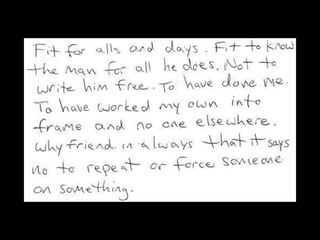 Fit for alls and days. Fit to know
the man for all he does. Not to
write him free. To have done me.
To have worked my own into
frame and no one elsewhere.
Why friend in always that it says
no to repeat or force someone
on something.